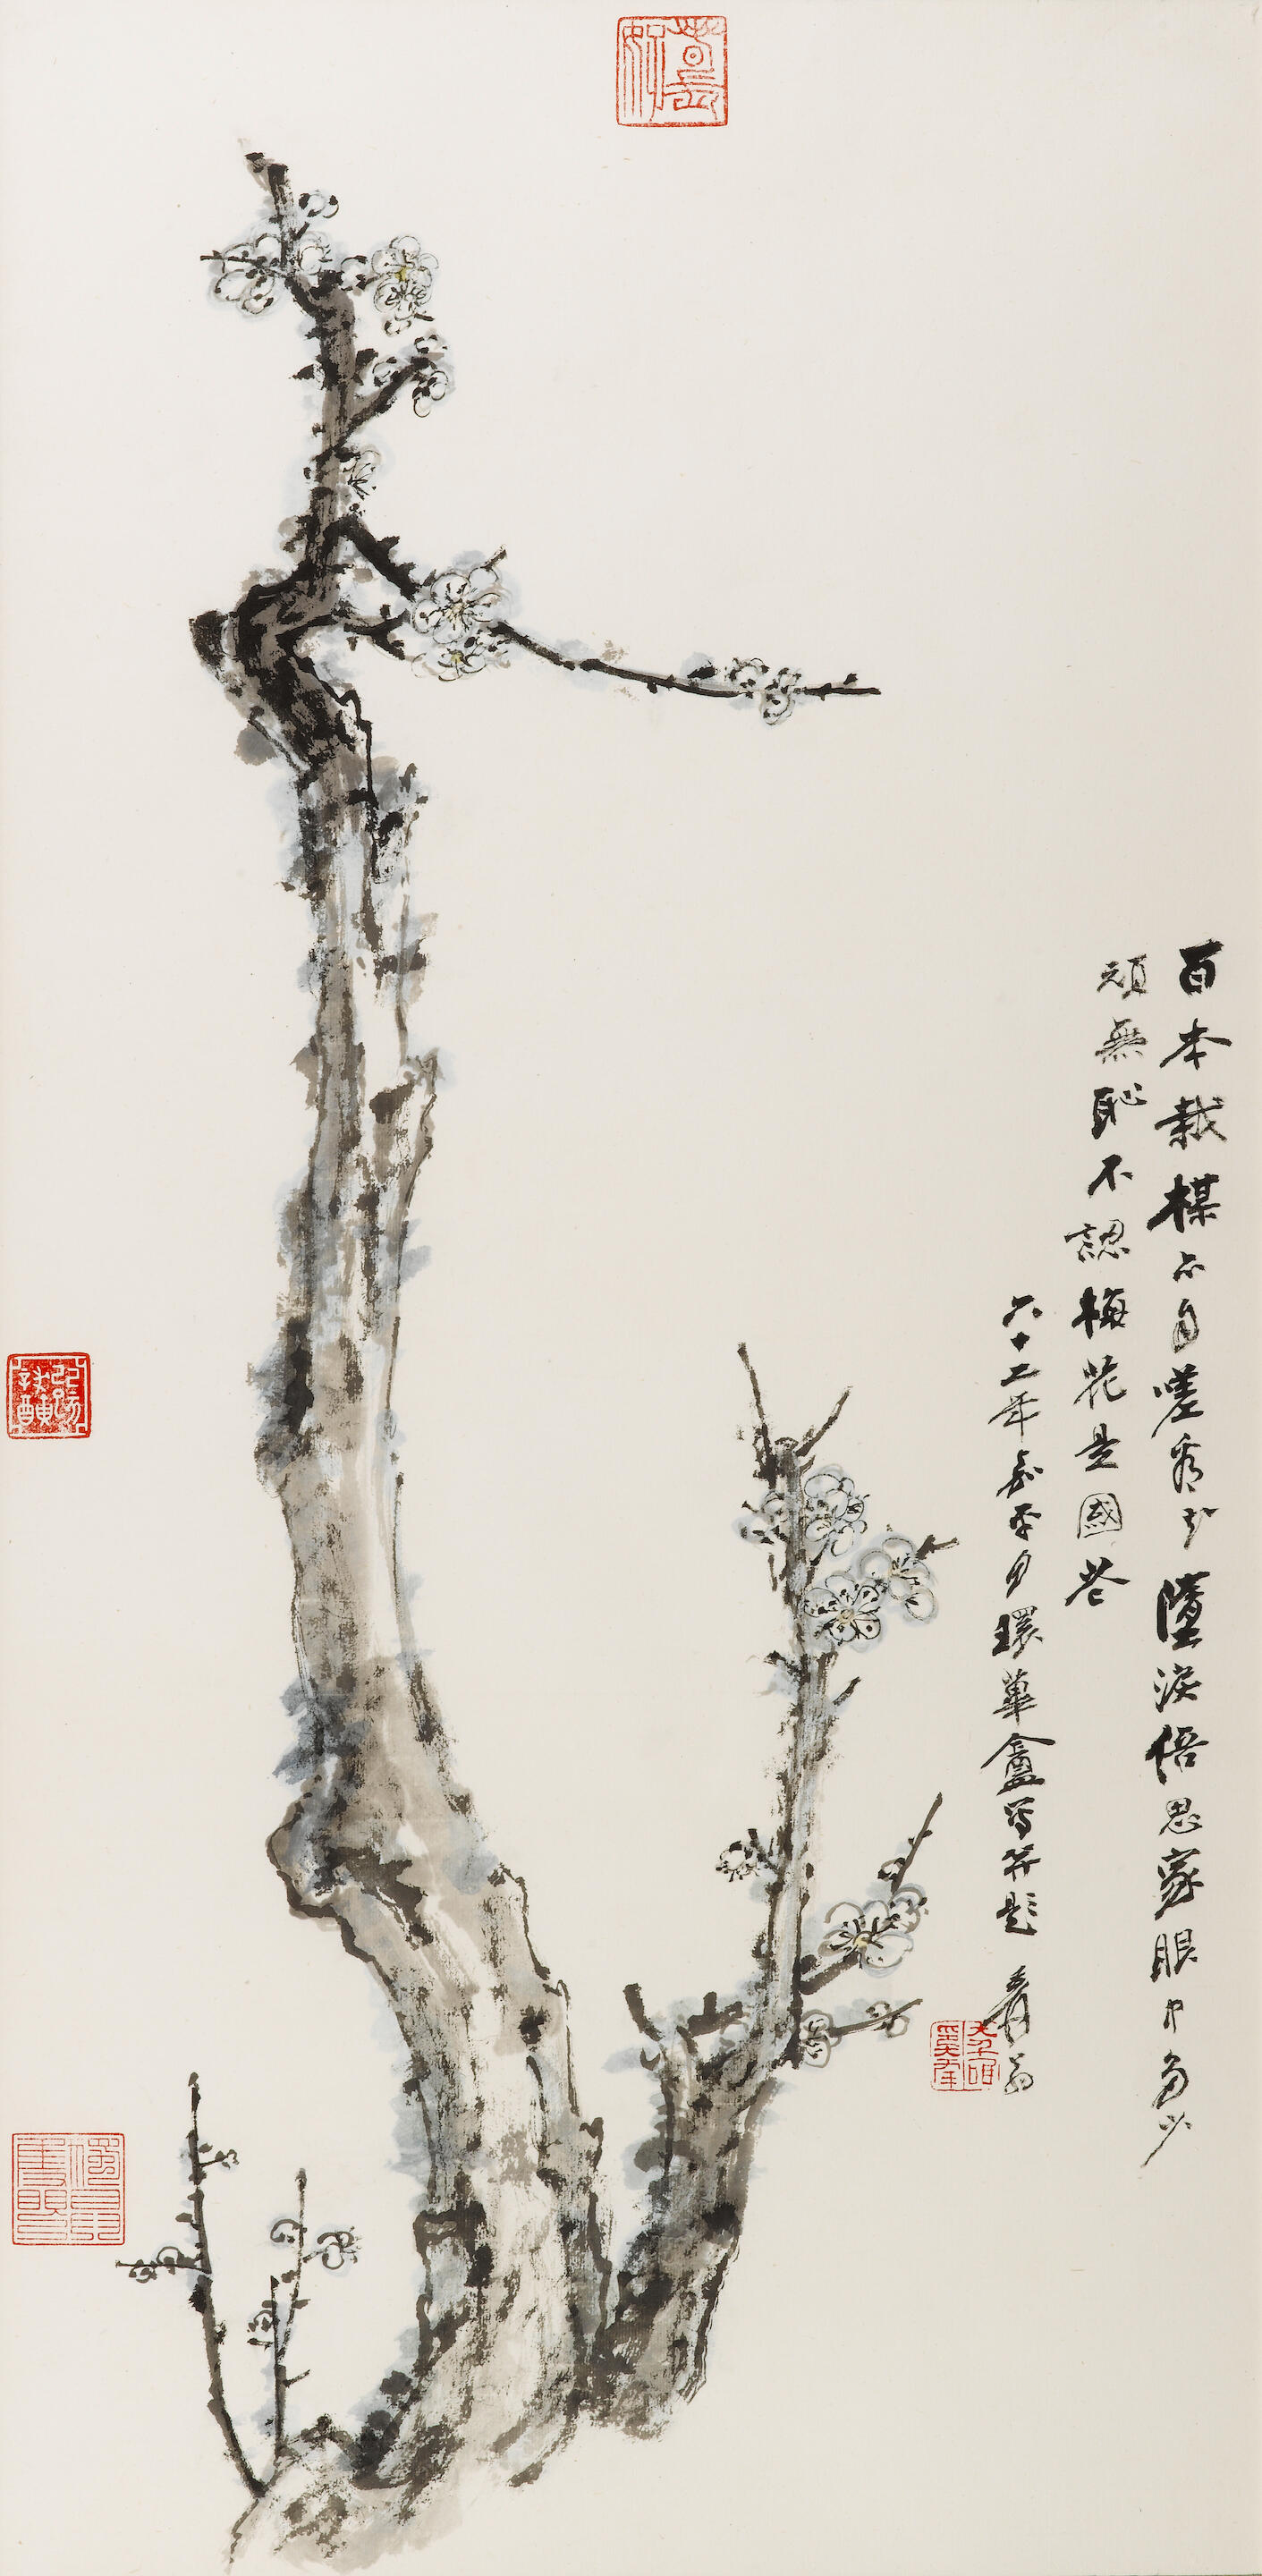 百本栽楳亦自嗟看花墮淚倍思家眼中多少
頑無恥不認梅花是國花
六十二年嘉平月環蓽盦寫并題 爰翁